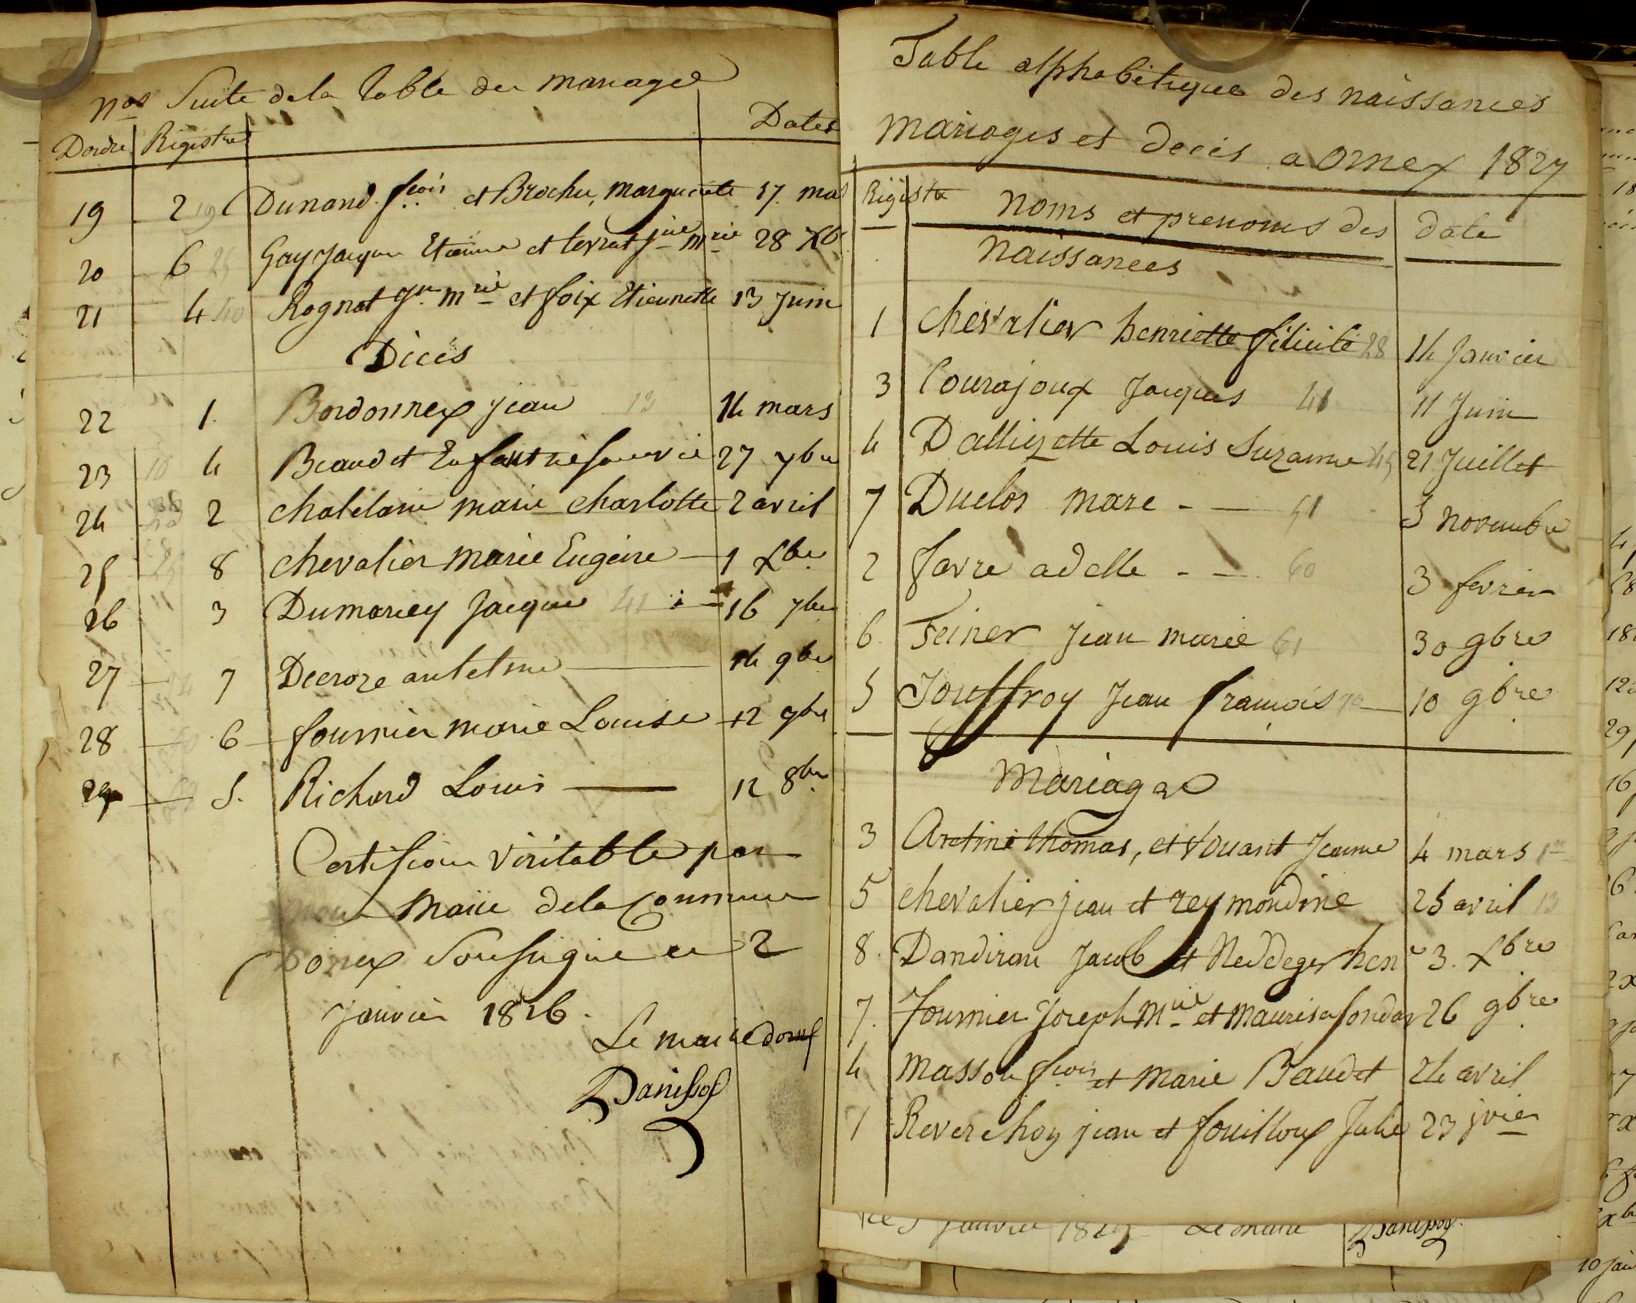 Nos Suite de la Table des mariages
Dordre Registre Dates
19 2 Dunand fçois et Brochu, Marguerite 17 mai
20 6 Gay Jacques Etienne et levrat jne mrie 28 Xbre
21 4 Rognat jn mrie et foix Etiennette 13 Juin
Décès
22 1 Bordonnex jean 13 14 mars
23 4 Beaudet Enfant né sans vie 27 7bre
24 2 chatelain marie charlotte 2 avril
25 8 chevalier marie Eugénie 1 Xbre
26 3 Dumarey Jacques 41 16 7bre
27 7 Decroze antelme 14 9bre
28 6 fournier marie Louise 12 9bre
29 5. Richard Louis 12 8bre
Certifié véritable par
nous Maire de la Commune
Dornex Soussigné ce 2
janvier 1826.
Le maire dornex
Danissof
Table alphabétique des naissances
mariages et décès a Ornex 1827
Registre noms et prenoms des date
naissances
1 chevalier henriette félicité 28 14 Janvier
3 Courajoux Jacques 41 11 Juin
4 Dallizette Louis Suzanne 45 21 Juillet
7 Duclos marc - - 51 3 novembre
2 favre adelle - - 60 3 fevrier
6 Feiner Jean marie 61 30 9bre
5 Jouffroy Jean françois 10 9bre
Mariages
3 Aretine thomas, et Vouant Jeanne 4 mars
5 chevalier jean et reymondine 25 avril 13
8. Dandiran Jacob et Neddeger hen 3. Xbre
7. fournier Joseph Mrie et maurisa fondar 26 9bre
4 masson fçois et marie Baudet 24 avril
1 Reverchoy jean et fouilloux Julie 23 jvier
ce 5 Janvier 1827 Le maire Danissof